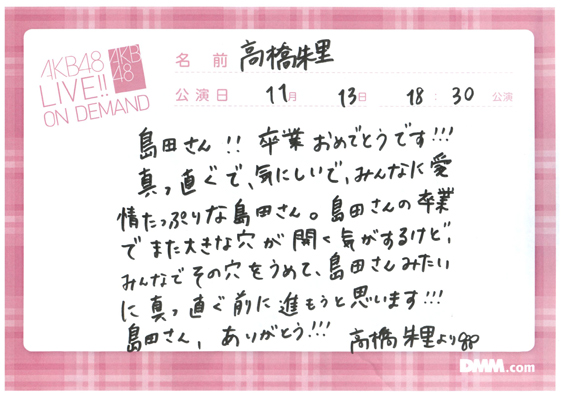 AKB48
LIVE!!
ON DEMAND
AKB
48
名 前 高橋朱里
公演日 11月 13日 18:30 公演
島田さん!! 卒業おめでとうです!!!
真っ直ぐで、気にしいで、みんなに愛
情たっぷりな島田さん。島田さんの卒業
でまた大きな穴が開く気がするけど、
みんなでその穴をうめて、島田さんみたい
に真っ直ぐ前に進もうと思います!!!
島田さん、ありがとう!!! 高橋朱里より
DMM.com